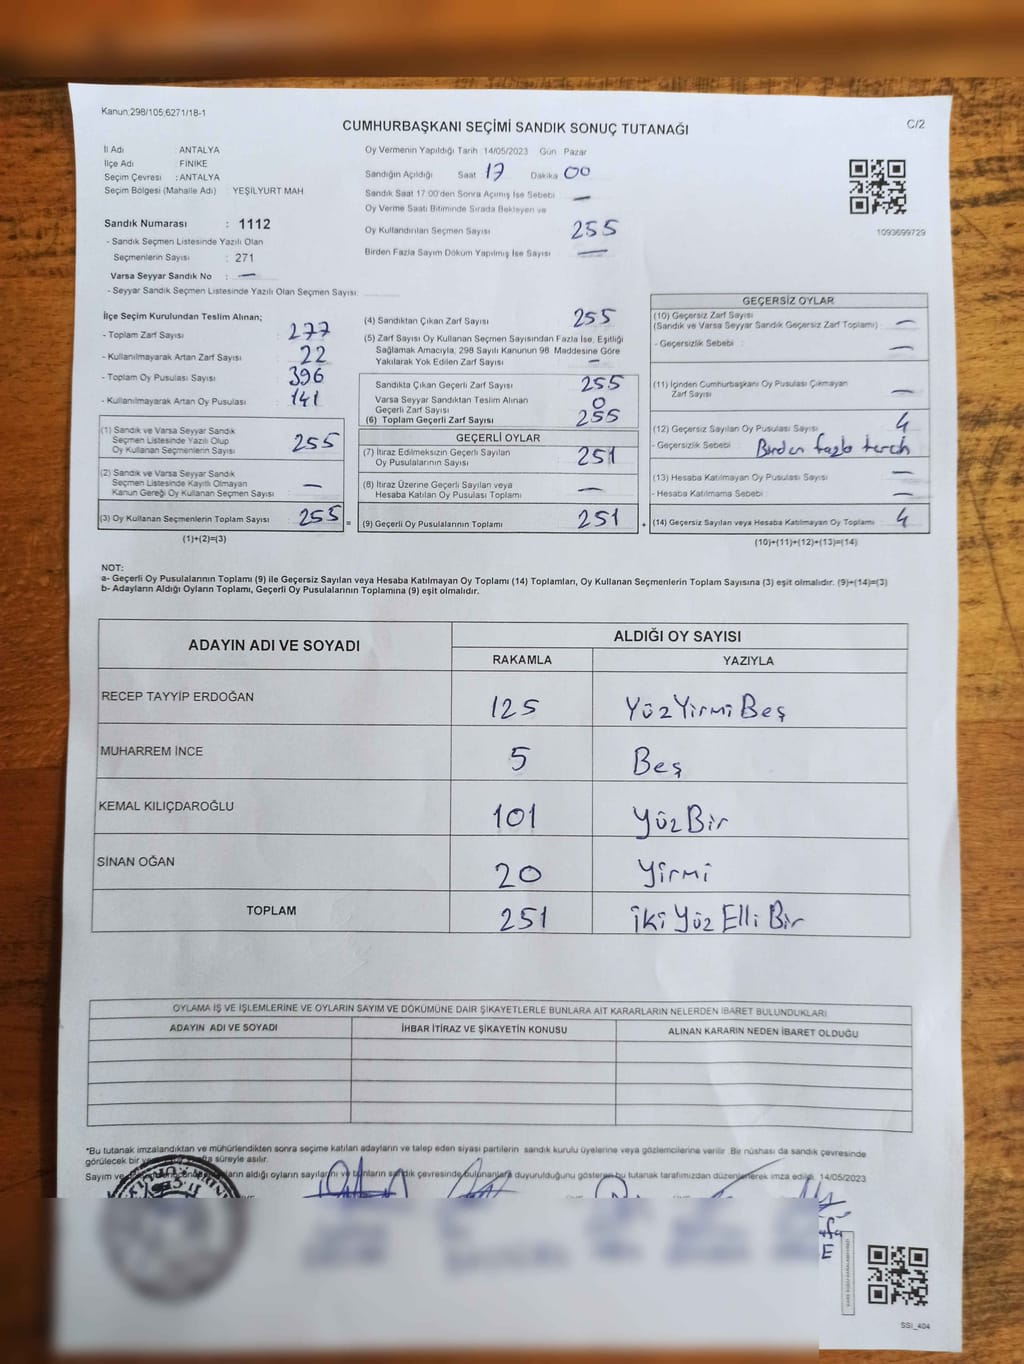 Kanun:298/105;6271/18-1
CUMHURBAŞKANI SEÇİMİ SANDIK SONUÇ TUTANAĞI
C/2
İl Adı : ANTALYA
İlçe Adı : FİNİKE
Seçim Çevresi : ANTALYA
Seçim Bölgesi (Mahalle Adı) YEŞİLYURT MAH
Oy Vermenin Yapıldığı Tarih 14/05/2023 Gün Pazar
Sandığın Açıldığı Saat 17 Dakika 00
Sandık Saat 17:00'den Sonra Açılmış İse Sebebi —
Oy Verme Saati Bitiminde Sırada Bekleyen ve
Oy Kullandırılan Seçmen Sayısı 255
Birden Fazla Sayım Döküm Yapılmış İse Sayısı —
1093699729
Sandık Numarası : 1112
- Sandık Seçmen Listesinde Yazılı Olan
Seçmenlerin Sayısı : 271
Varsa Seyyar Sandık No : —
- Seyyar Sandık Seçmen Listesinde Yazılı Olan Seçmen Sayısı:
İlçe Seçim Kurulundan Teslim Alınan;
- Toplam Zarf Sayısı 277
- Kullanılmayarak Artan Zarf Sayısı 22
- Toplam Oy Pusulası Sayısı 396
- Kullanılmayarak Artan Oy Pusulası 141
(1) Sandık ve Varsa Seyyar Sandık
Seçmen Listesinde Yazılı Olup
Oy Kullanan Seçmenlerin Sayısı 255
(2) Sandık ve Varsa Seyyar Sandık
Seçmen Listesinde Kayıtlı Olmayan
Kanun Gereği Oy Kullanan Seçmen Sayısı —
(3) Oy Kullanan Seçmenlerin Toplam Sayısı 255 =
(1)+(2)=(3)
(4) Sandıktan Çıkan Zarf Sayısı 255
(5) Zarf Sayısı Oy Kullanan Seçmen Sayısından Fazla İse, Eşitliği
Sağlamak Amacıyla, 298 Sayılı Kanunun 98. Maddesine Göre
Yakılarak Yok Edilen Zarf Sayısı —
Sandıkta Çıkan Geçerli Zarf Sayısı 255
Varsa Seyyar Sandıktan Teslim Alınan
Geçerli Zarf Sayısı 0
(6) Toplam Geçerli Zarf Sayısı 255
GEÇERLİ OYLAR
(7) İtiraz Edilmeksizin Geçerli Sayılan
Oy Pusulalarının Sayısı 251
(8) İtiraz Üzerine Geçerli Sayılan veya
Hesaba Katılan Oy Pusulası Toplamı —
(9) Geçerli Oy Pusulalarının Toplamı 251 +
GEÇERSİZ OYLAR
(10) Geçersiz Zarf Sayısı
(Sandık ve Varsa Seyyar Sandık Geçersiz Zarf Toplamı) —
- Geçersizlik Sebebi : —
(11) İçinden Cumhurbaşkanı Oy Pusulası Çıkmayan
Zarf Sayısı —
(12) Geçersiz Sayılan Oy Pusulası Sayısı 4
- Geçersizlik Sebebi : Birden fazla tercih
(13) Hesaba Katılmayan Oy Pusulası Sayısı —
- Hesaba Katılmama Sebebi —
(14) Geçersiz Sayılan veya Hesaba Katılmayan Oy Toplamı 4
(10)+(11)+(12)+(13)=(14)
NOT:
a- Geçerli Oy Pusulalarının Toplamı (9) ile Geçersiz Sayılan veya Hesaba Katılmayan Oy Toplamı (14) Toplamları, Oy Kullanan Seçmenlerin Toplam Sayısına (3) eşit olmalıdır. (9)+(14)=(3)
b- Adayların Aldığı Oyların Toplamı, Geçerli Oy Pusulalarının Toplamına (9) eşit olmalıdır.
ADAYIN ADI VE SOYADI
ALDIĞI OY SAYISI
RAKAMLA YAZIYLA
RECEP TAYYİP ERDOĞAN 125 YüzYirmiBeş
MUHARREM İNCE 5 Beş
KEMAL KILIÇDAROĞLU 101 YüzBir
SİNAN OĞAN 20 Yirmi
TOPLAM 251 İki Yüz Elli Bir
OYLAMA İŞ VE İŞLEMLERİNE VE OYLARIN SAYIM VE DÖKÜMÜNE DAİR ŞİKAYETLERLE BUNLARA AİT KARARLARIN NELERDEN İBARET BULUNDUKLARI
ADAYIN ADI VE SOYADI İHBAR İTİRAZ VE ŞİKAYETİN KONUSU ALINAN KARARIN NEDEN İBARET OLDUĞU
*Bu tutanak imzalandıktan ve mühürlendikten sonra seçime katılan adayların ve talep eden siyasi partilerin sandık kurulu üyelerine veya gözlemcilerine verilir. Bir nüshası da sandık çevresinde
görülecek bir süreyle asılır.
Sayım ve aldığı oyların sayılarını ve bunların sandık çevresinde bulunanlara duyurulduğunu gösteren bu tutanak tarafımızdan düzenlenerek imza edildi. 14/05/2023
E
SSİ_404